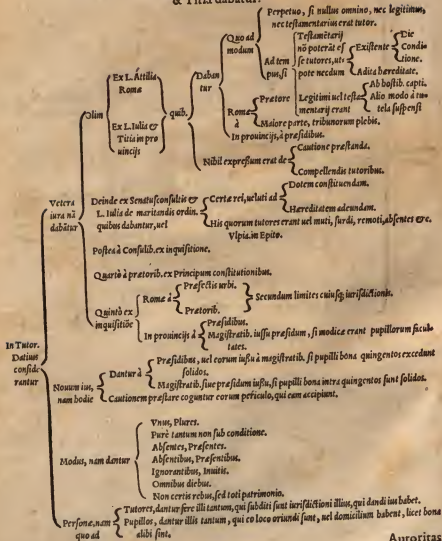 & Titia dabatur.
Perpetuo, si nullus omnino, nec legitimus,
nec testamentarius erat tutor.
Quo ad
modum
Ad tem
pus, si
Testamētarij
nō poterāt es
se tutores, ut
pote necdum
Existente
Die
Condi-
tione.
Adita hæreditate.
Olim
Ex L. Attilia
Romæ
Ex L. Iulia &
Titia in pro
uincijs
quib.
Daban
tur
Romæ
à
Prætore
Legitimi uel testa
mentarij erant
Ab hostib. capti.
Alio modo à tu-
tela suspensi
Maiore parte, tribunorum plebis.
In prouincijs, à præsidibus.
Nihil expressum erat de
Cautione præstanda.
Compellendis tutoribus.
Vetera
iura nā
dabātur
Deinde ex Senatusconsultis &
L. Iulia de maritandis ordin.
quibus dabantur, uel
Certæ rei, ueluti ad
Dotem constituendam.
Hæreditatem adeundam.
His quorum tutores erant uel muti, furdi, remoti, absentes &c.
Vlpia. in Epito.
Postea à Consulib. ex inquisitione.
Quartò à prætorib. ex Principum constitutionibus.
Quintò ex
inquisitiōe
Romæ à
Præfectis urbi.
Prætorib.
Secundum limites cuiusq; iurisdictionis.
In prouincijs à
Præsidibus.
Magistratib. iussu præsidum, si modicæ erant pupillorum facul-
tates.
In Tutor.
Datiuus
conside
rantur
Nouum ius,
nam hodie
Dantur à
Præsidibus, uel eorum iussu à magistratib. si pupilli bona quingentos excedunt
solidos.
Magistratib. siue præsidum iussu, si pupilli bona intra quingentos sunt solidos.
Cautionem præstare coguntur eorum periculo, qui eam accipiunt.
Modus, nam dantur
Vnus, Plures.
Purè tantum non sub conditione.
Absentes, Præsentes.
Absentibus, Præsentibus.
Ignorantibus, Inuitis.
Omnibus diebus.
Non certis rebus, sed toti patrimonio.
Personæ, nam
quo ad
Tutores, dantur fere illi tantum, qui subditi sunt iurisdictioni illius, qui dandi ius habet.
Pupillos, dantur illis tantum, qui eo loco oriundi sunt, uel domicilium habent, licet bona
alibi sint.
Autoritas